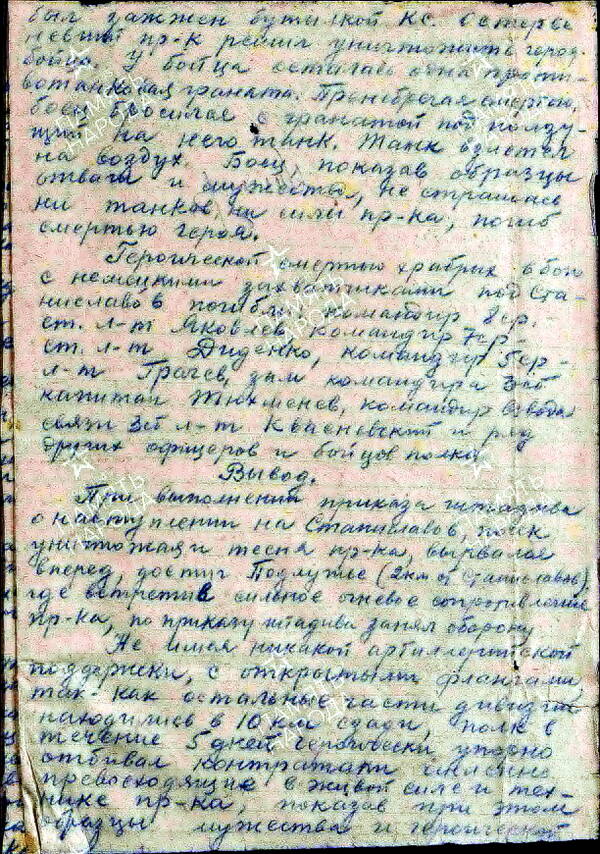 был зажжен бутылкой КС. Остерве
невший пр-к решил уничтожить героя
бойца. У бойца осталась одна проти-
вотанковая граната. Пренебрегая смертью,
боец бросился с гранатой под ползу-
щий на него танк. Танк взлетел
на воздух. Боец, показав образцы
отваги и мужества, не страшась
ни танков ни силы пр-ка, погиб
смертью героя.
Героической смертью храбрых в бою
с немецкими захватчиками под Ста-
ниславов погибли: командир 8ср.
ст. л-т Яковлев, командир 7ср-
ст. л-т Диденко, командир 5ср-
л-т Грачев, зам командира 3сб
капитан Тюхменев, командир взвода
связи 3сб л-т Квасневский и ряд
других офицеров и бойцов полка.
Вывод.
При выполнении приказа штадива
о наступлении на Станиславов, полк
уничтожая и тесня пр-ка, вырвался
вперед, достиг Подлужье (2км от Станиславов),
где встретив сильное огневое сопротивление
пр-ка, по приказу штадива занял оборону.
Не имея никакой артиллерийской
поддержки, с открытыми флангами,
так-как остальные части дивизии
находились в 10 км сзади, полк в
течение 5 дней героически упорно
отбивал контратаки
превосходящие в живой силе и тех-
нике пр-ка, показав при этом
образцы мужества и героической
ПАМЯТЬ
НАРОДА